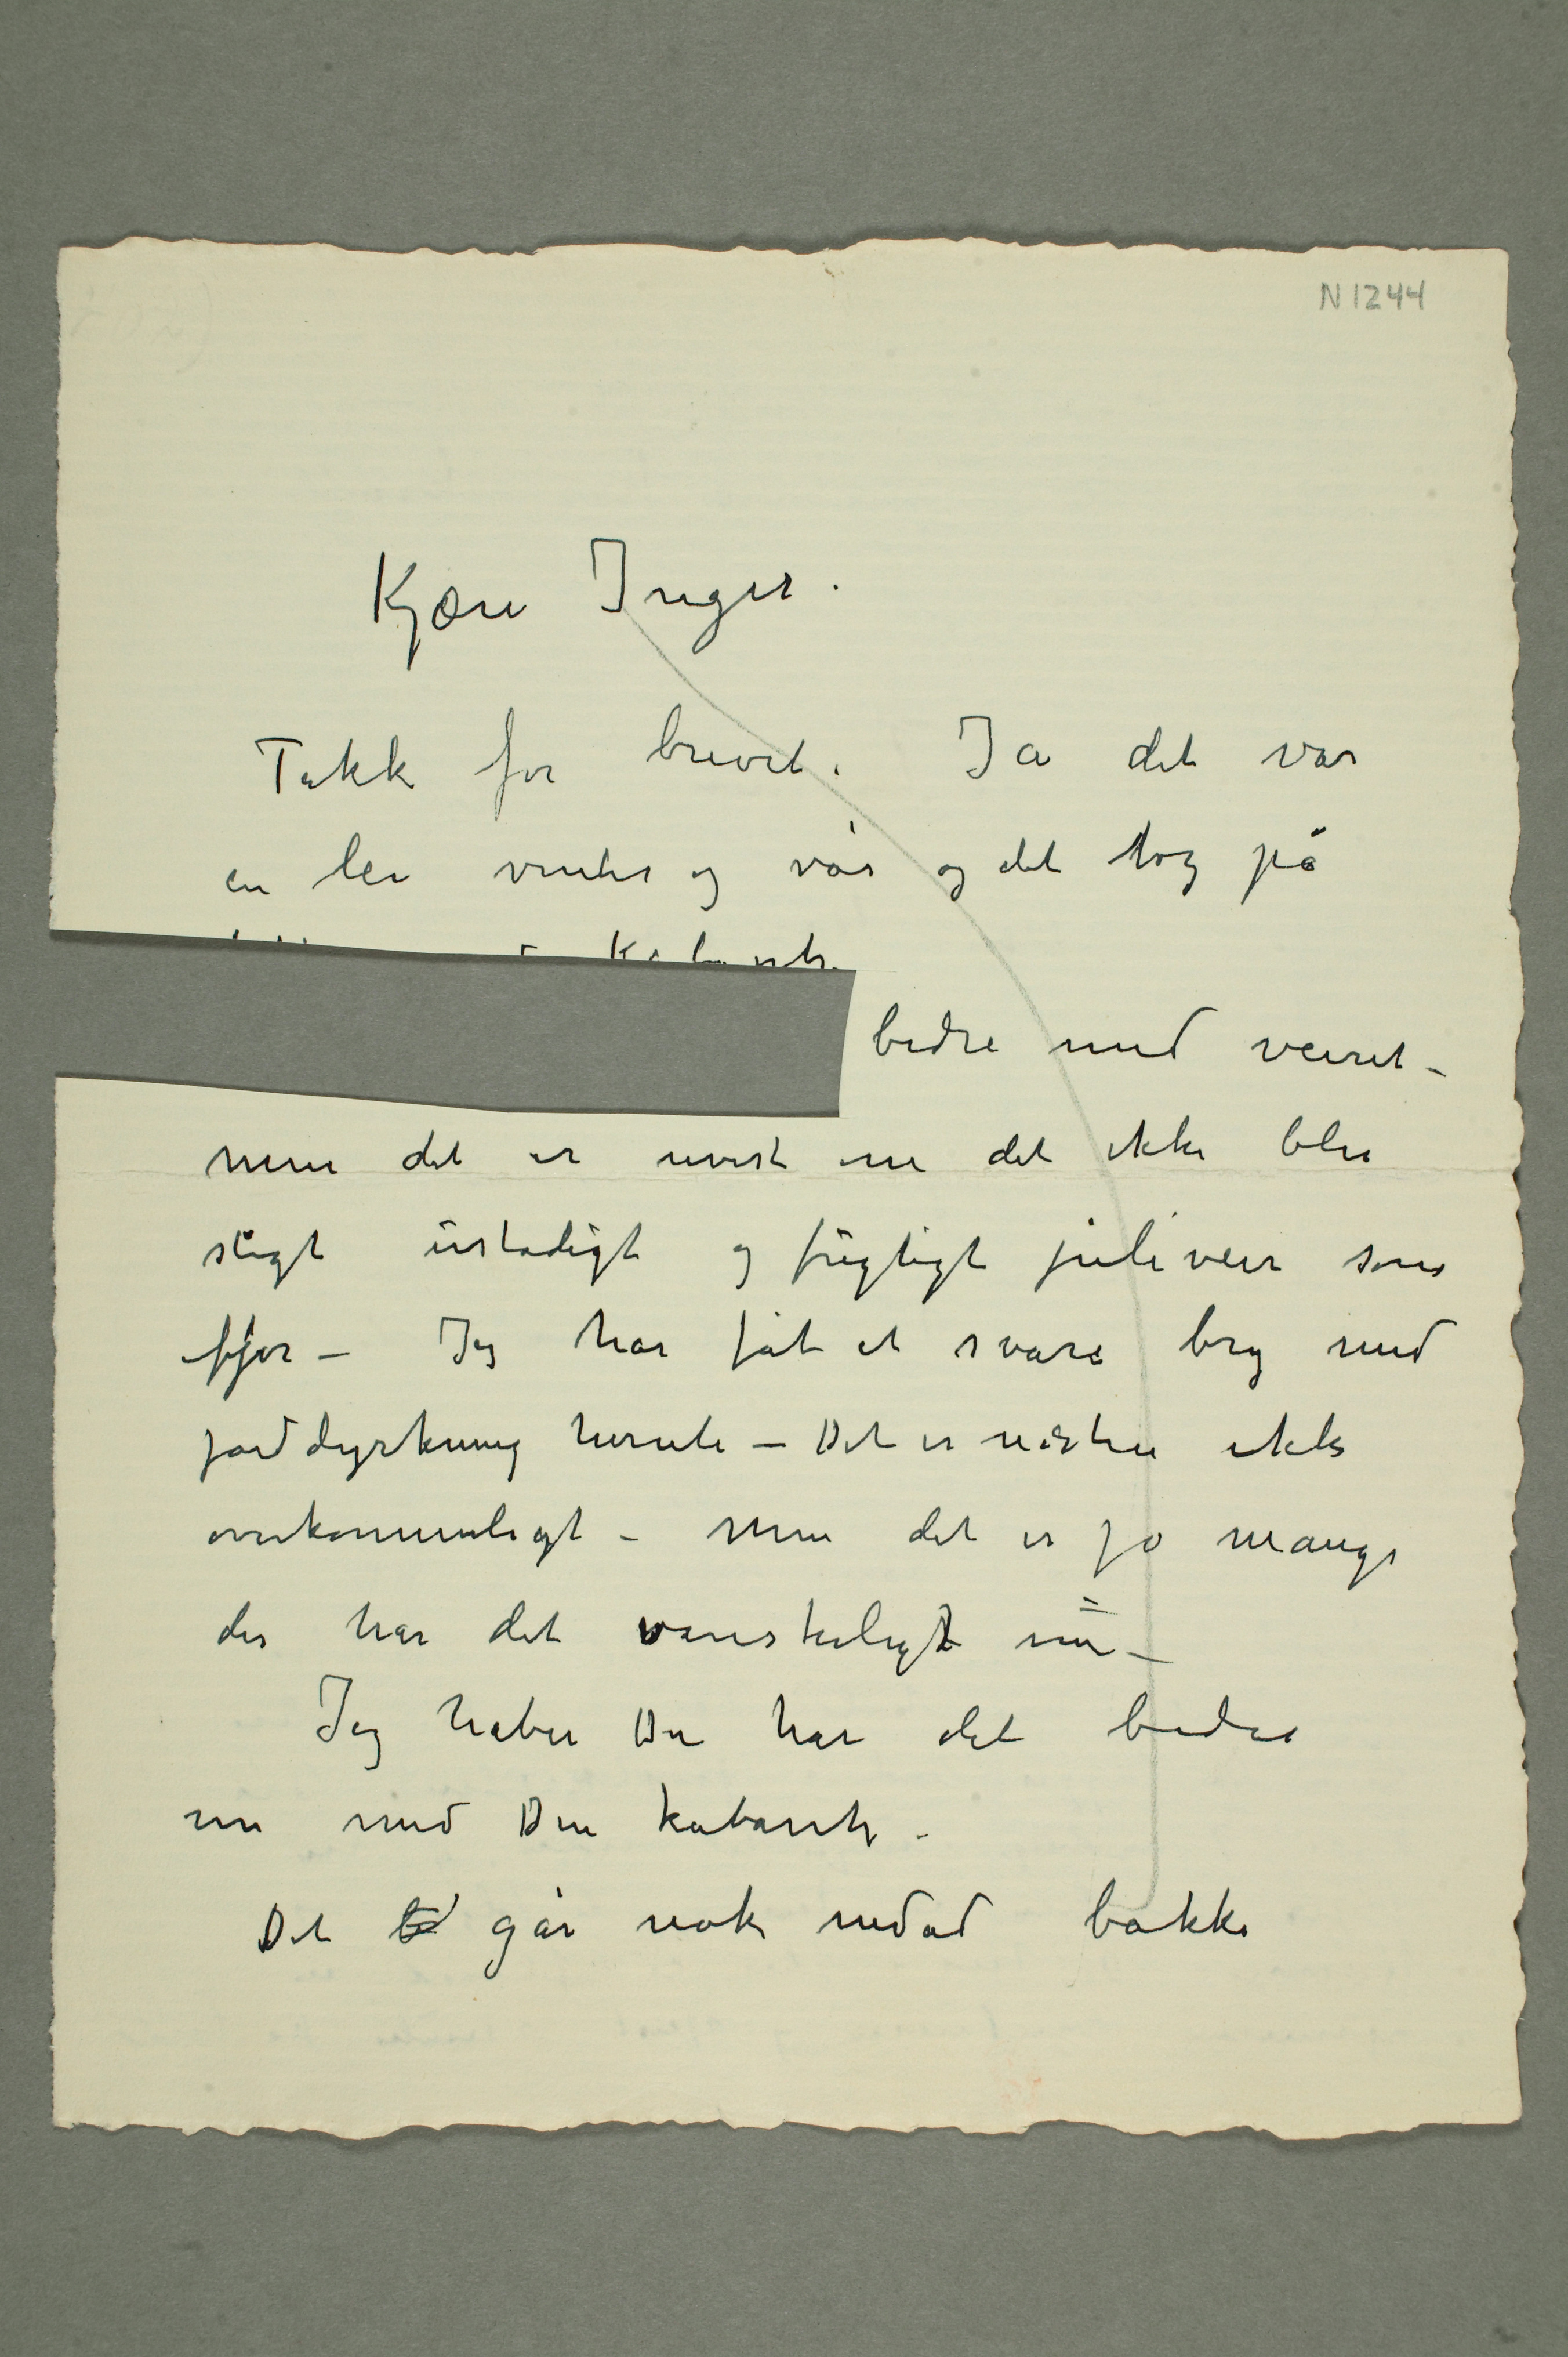 N 1244
Kjære Inger.
Takk for brevet. Ja det var
en lei vinter og vår og det tog på
bedre med veiret –
men det er uvist om det ikke blir
sligt ustadigt og fugtigt juliveir som
ifjor – Jeg har fåt et svare bry med
jorddyrkning herute – Det er næsten ikke
overkommeligt – Men det er jo mange
der har det vanskeligt nu –
Jeg håber Du har det bedre
nu med Din katarrh –
Det går nok nedad bakke